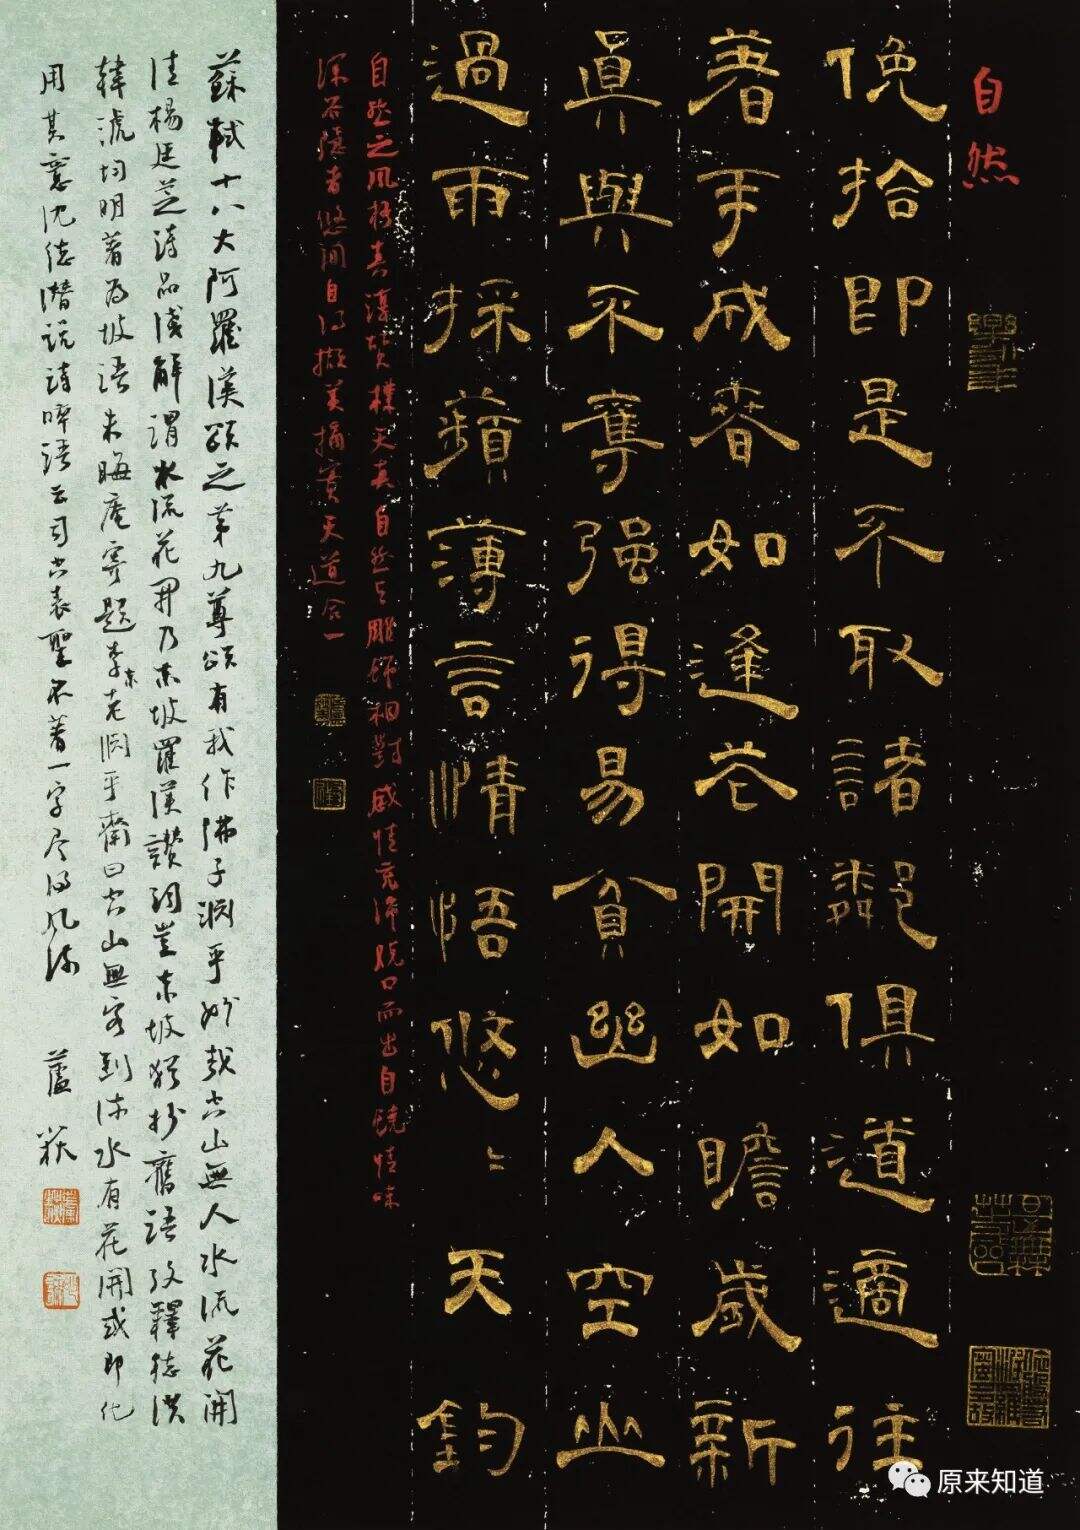 自然
俛拾即是不取諸鄰俱道適往
著手成春如逢花開如瞻歲新
眞與不奪强得易貧幽人空山
過雨採蘋薄言情悟悠〻天鈞
自然之風格真淳質樸天真自然與雕飾相對感情充沛脫口而出自饒情味
深谷隱者悠閒自得擷美摘實天道合一
蘇軾十八大阿羅漢頌之第九尊頌有我作佛子淵乎妙哉空山無人水流花開
清楊廷芝詩品淺解謂水流花開乃東坡羅漢讚詞豈東坡猶抄舊語攷釋德洪
韓淲均明著為坡語朱晦庵寄題李東老淵乎齋曰空山無客到流水有花開或即化
用其意沈德潛說詩晬語云司空表聖不著一字盡得風流 蘆荻
原来知道